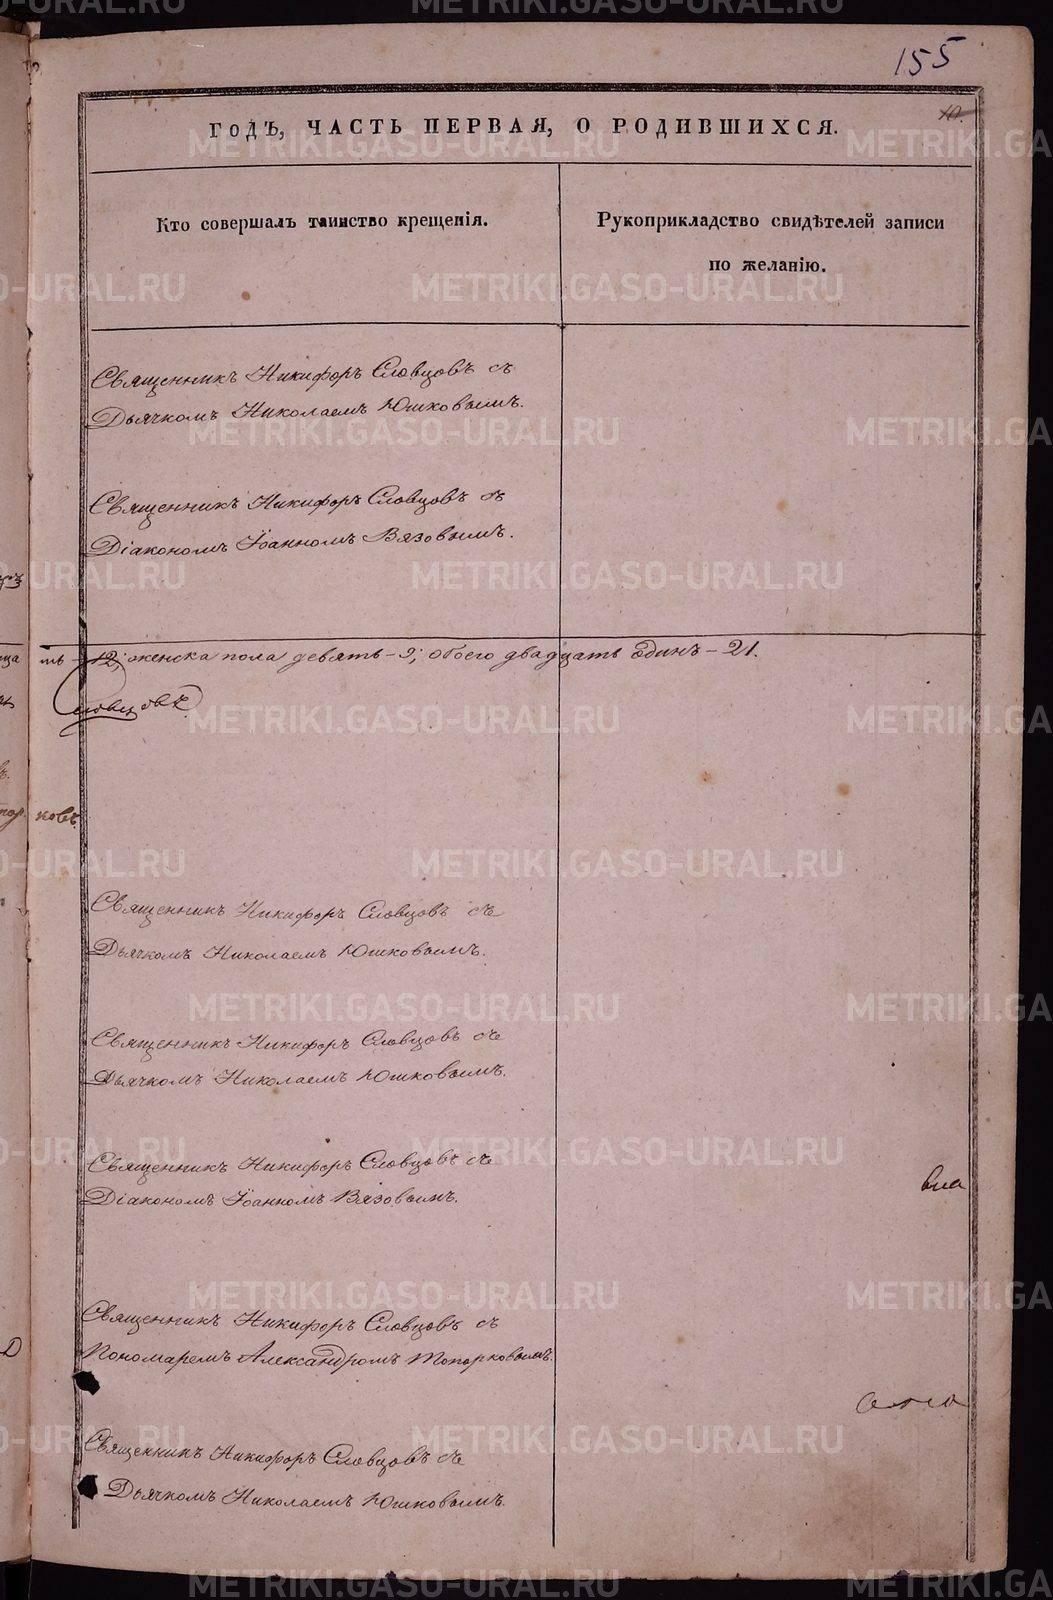 155
10.
ГОДЪ, ЧАСТЬ ПЕРВАЯ, О РОДИВШИХСЯ.
Кто совершалъ таинство крещенія.
Рукоприкладство свидѣтелей записи
по желанію.
Священникъ Никифоръ Словцовъ съ
Дьячкомъ Николаемъ Юшковымъ.
Священникъ Никифоръ Словцовъ съ
Діакономъ Іоанномъ Вязовымъ.
ть - 12; женска пола девять - 9; обоего двадцать одинъ - 21.
Словцовъ
ковъ.
Священникъ Никифоръ Словцовъ съ
Дьячкомъ Николаемъ Юшковымъ.
Священникъ Никифоръ Словцовъ съ
Дьячкомъ Николаемъ Юшковымъ.
Священникъ Никифоръ Словцовъ съ
Діакономъ Іоанномъ Вязовымъ.
Священникъ Никифоръ Словцовъ съ
Пономаремъ Александромъ Топорковымъ.
Священникъ Никифоръ Словцовъ съ
Дьячкомъ Николаемъ Юшковымъ.
METRIKI.GASO-URAL.RU